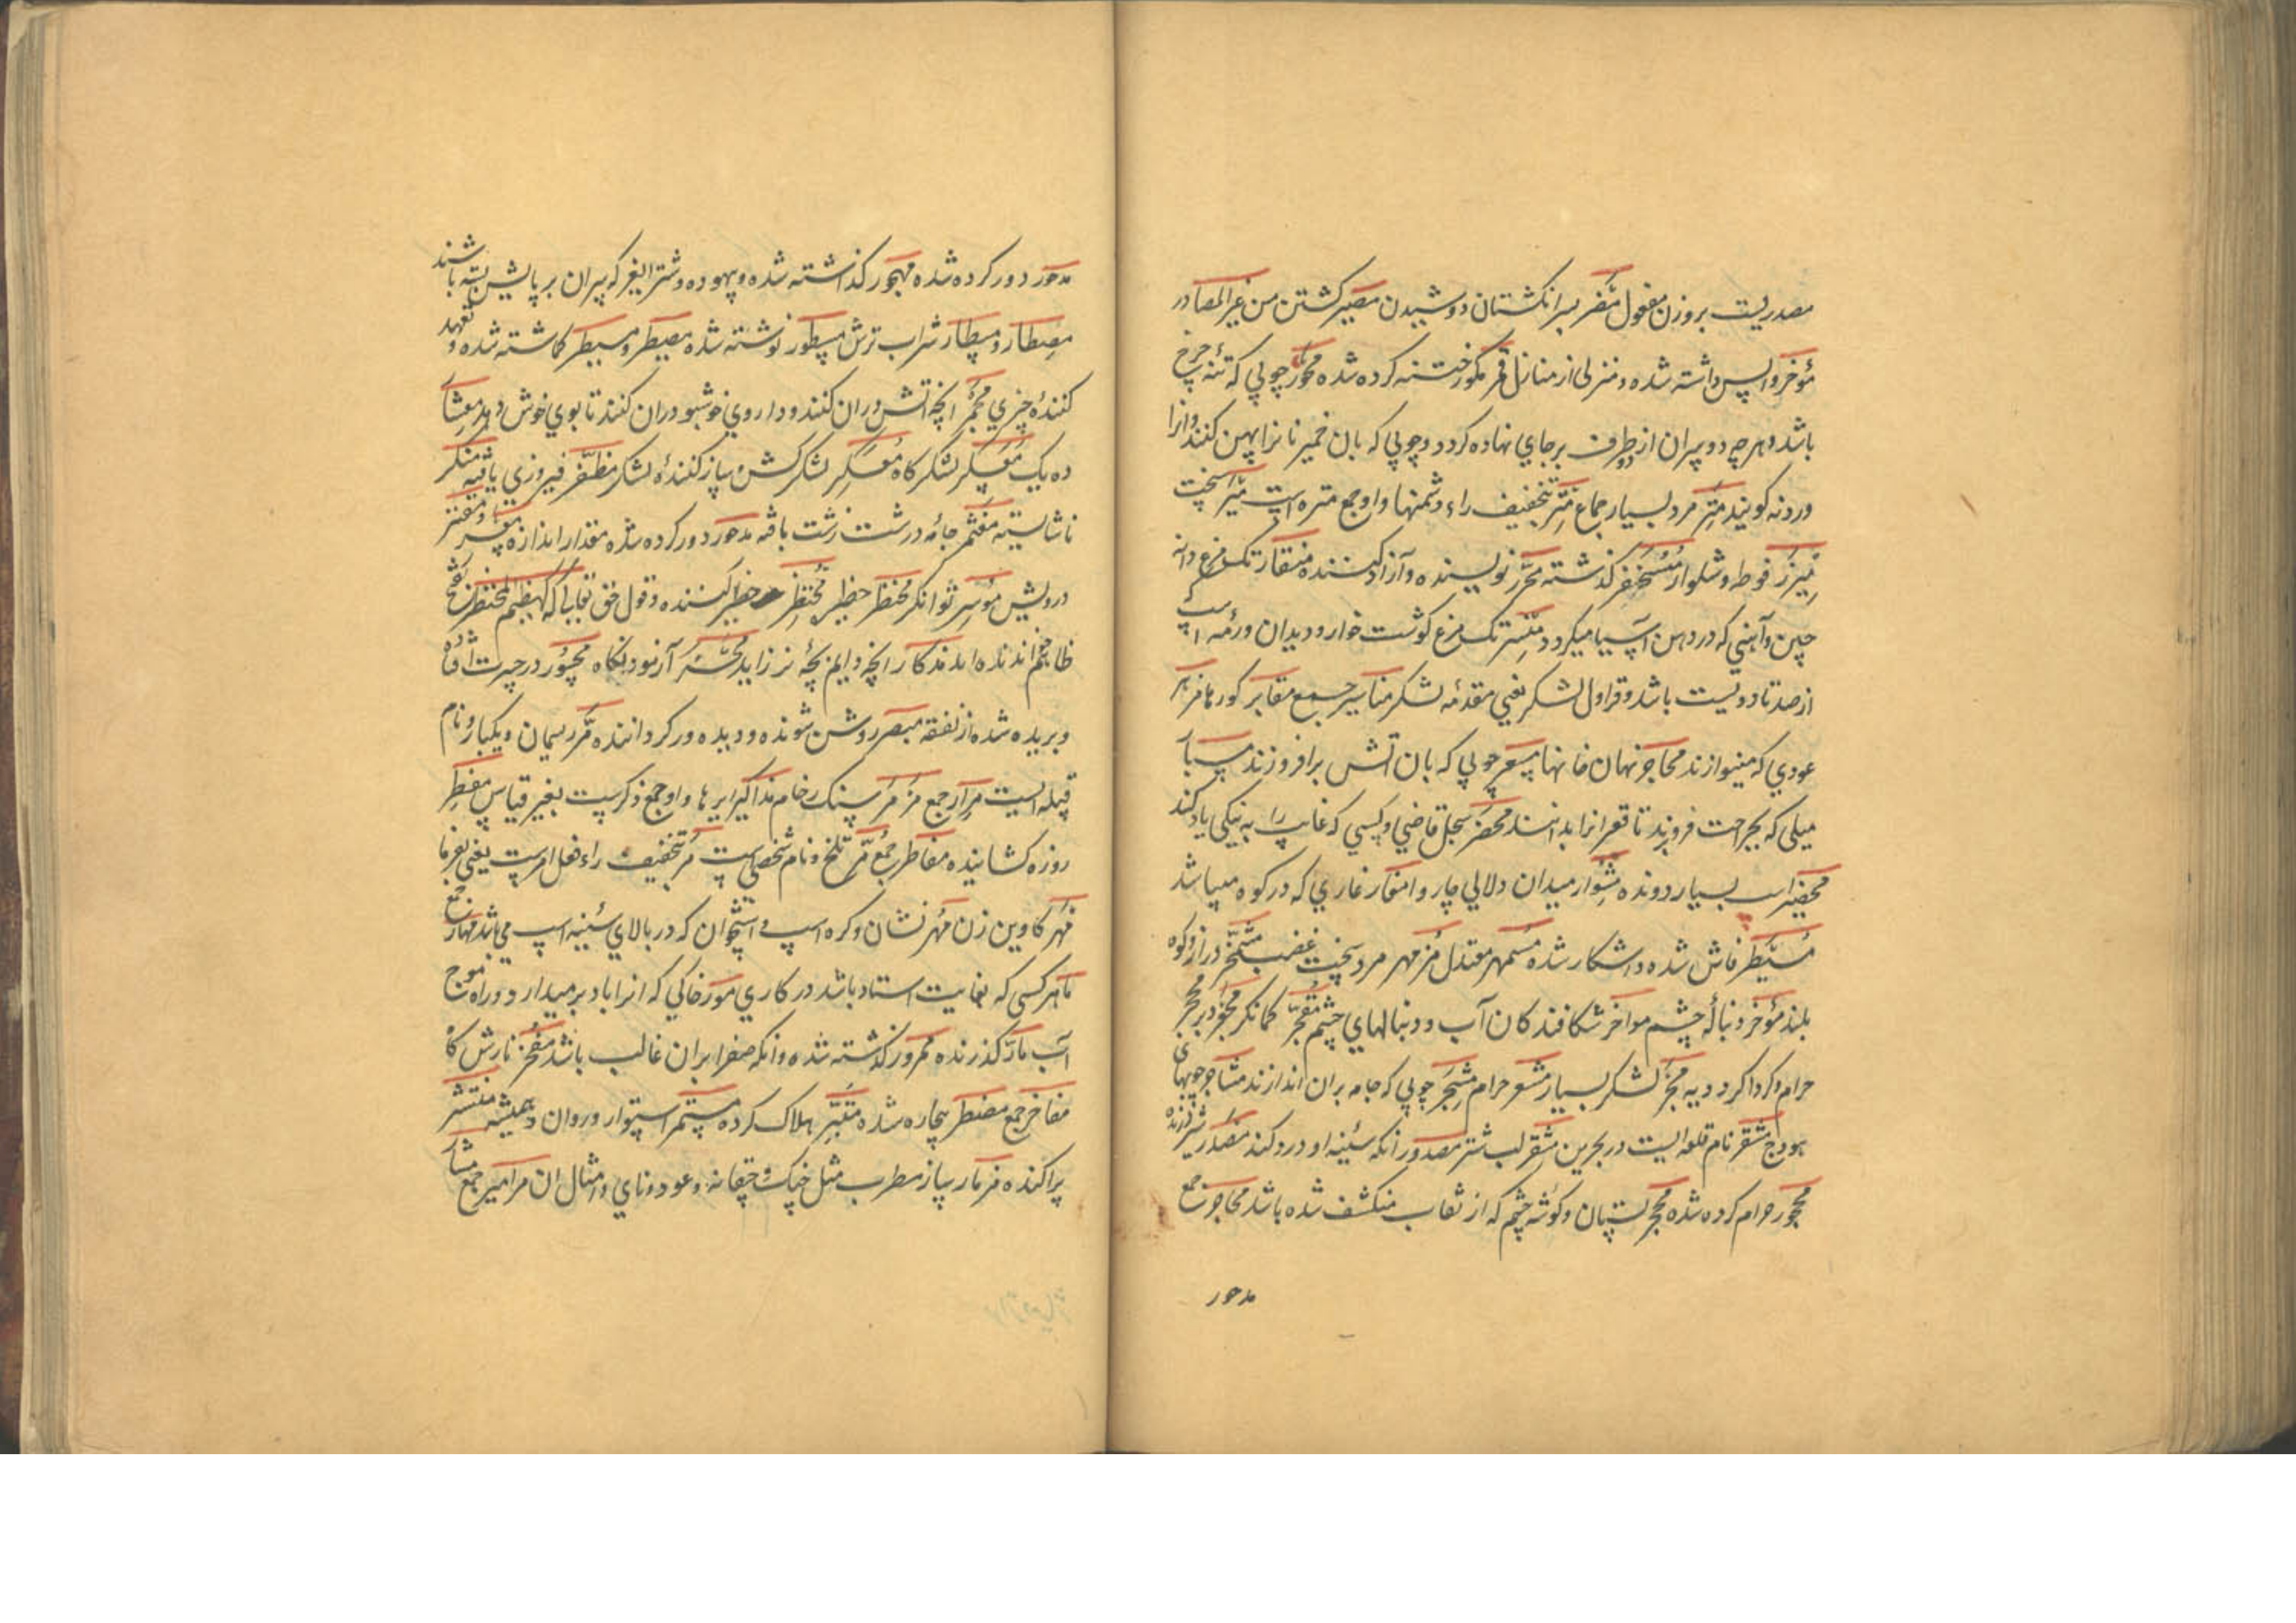 مصدریست بروزن مفعول مضر بسر انکشتان دوشیدن مصیر کشتن من غیر المصادر
مؤخر واپس داشته شده و منزلی از منازل قمر مکمور ختنه کرده شده محور چوبی که تنه چرخ
باشد و هر چه دو سران از دو طرف بر جای نهاده کردد و چوبی که بان خمیر نانرا پهن کنند و انرا
وردنه کویند مئر مرد بسیار جماع مئر بتخفیف راء دشمنیها واو جمع مئره است
میزر فوطه و شلوار مسحنفر کذشته محرر نویسنده و آزاد کننده منقار تک مرغ دانه
چین و آهنی که در دهن آسیا میکردد منسر تک مرغ کوشت خوار و دیدان و رمه اسپ
از صد تا دویست باشد و قراول لشکر یعنی مقدمه لشکر مناسیر جمع مقابر کورها مزهر
عودی که مینوازند محاجر نهان خانها مسعر چوبی که بان آتش برافروزند مسبار
میلی که بجراحت فروبرند تا قعر انرا بدانند محضر سجل قاضی و کسی که غایب را به نیکی یاد کند
محضیر اسب بسیار دونده مشوار میدان دلالی چاروا مغار غاری که در کوه میباشد
مستطر فاش شده و اشکار شده مسمهر معتدل مزمهر مرد سخت غضب مشمخر دراز و کوه
بلند مؤخر دنباله چشم مواخر شکافندکان آب و دنبالهای چشم متفجر کمانکر محجر دبر محجر
حرام و کرداکرد دیه مجر لشکر بسیار مشعر حرام مشجر چوبی که جامه بران اندازند مشاجر چوبهای
هودج مشقر نام قلعه ایست در بحرین مشفر لب شتر مصدور انکه سینه او درد کند مصدر شیر درنده
محجور حرام کرده شده محجر بستان و کوشه چشم که از نقاب منکشف شده باشد محاجر جمع
مدحور
مدحور دور کرده شده مهجور کذاشته شده و بیهوده و شتر ایغر که پیران بر پایش بسته باشند
مصطار و مسطار شراب ترش مسطور نوشته شده مصیطر و مسیطر کماشته شده و تعهد
کننده چیزی مجمر انچه آتش دران کنند و داروی خوشبو دران کنند تا بوی خوش دهد معشار
ده یک معسکر لشکرکاه معسکر لشکرکش و ساز کننده لشکر مظفر فیروزی یافته منکر
ناشایسته جامه درشت زشت بافته مدحور دور کرده شده مقدار اندازه معسر و مفتر
درویش موسر توانکر محتظر حظیر محتظر حظیر کننده و قول حق تعالی کهشیم المحتظر بفتح
ظا هم خوانده اند مذکار انچه دایم بچه نر زاید مخبر آزمودنکاه محیور در حیرت افتاده
و بریده شده از نفقه مبصر روشن شونده و دیده ور کرداننده مر ریسمان و یکبار و نام
قبیله ایست مرار جمع مرمر سنک رخام مذاکیر ایرها واو جمع ذکرست بغیر قیاس مفطر
روزه کشاینده مفاطر جمع مر تلخ و نام شخصی است مر بتخفیف راء فعل امرست یعنی بفرما
مهر کاوین زن مهر نشان و کره اسپ و استخوان که در بالای سینه اسپ می باشد مهار جمع
ماهر کسی که بغایت استاد باشد در کاری مور خاکی که انرا باد برمیدارد و راه موج
آب مار کذرنده ممرور کذشته شده و انکه صفرا بران غالب باشد مفخر نازش کاه
مفاخر جمع مضطر بیچاره شده متبر هلاک کرده مستمر استوار و روان و همیشه منتشر
پراکنده مزمار ساز مطرب مثل خنک و چقانه و عود و نای و امثال ان مزامیر جمع مشار